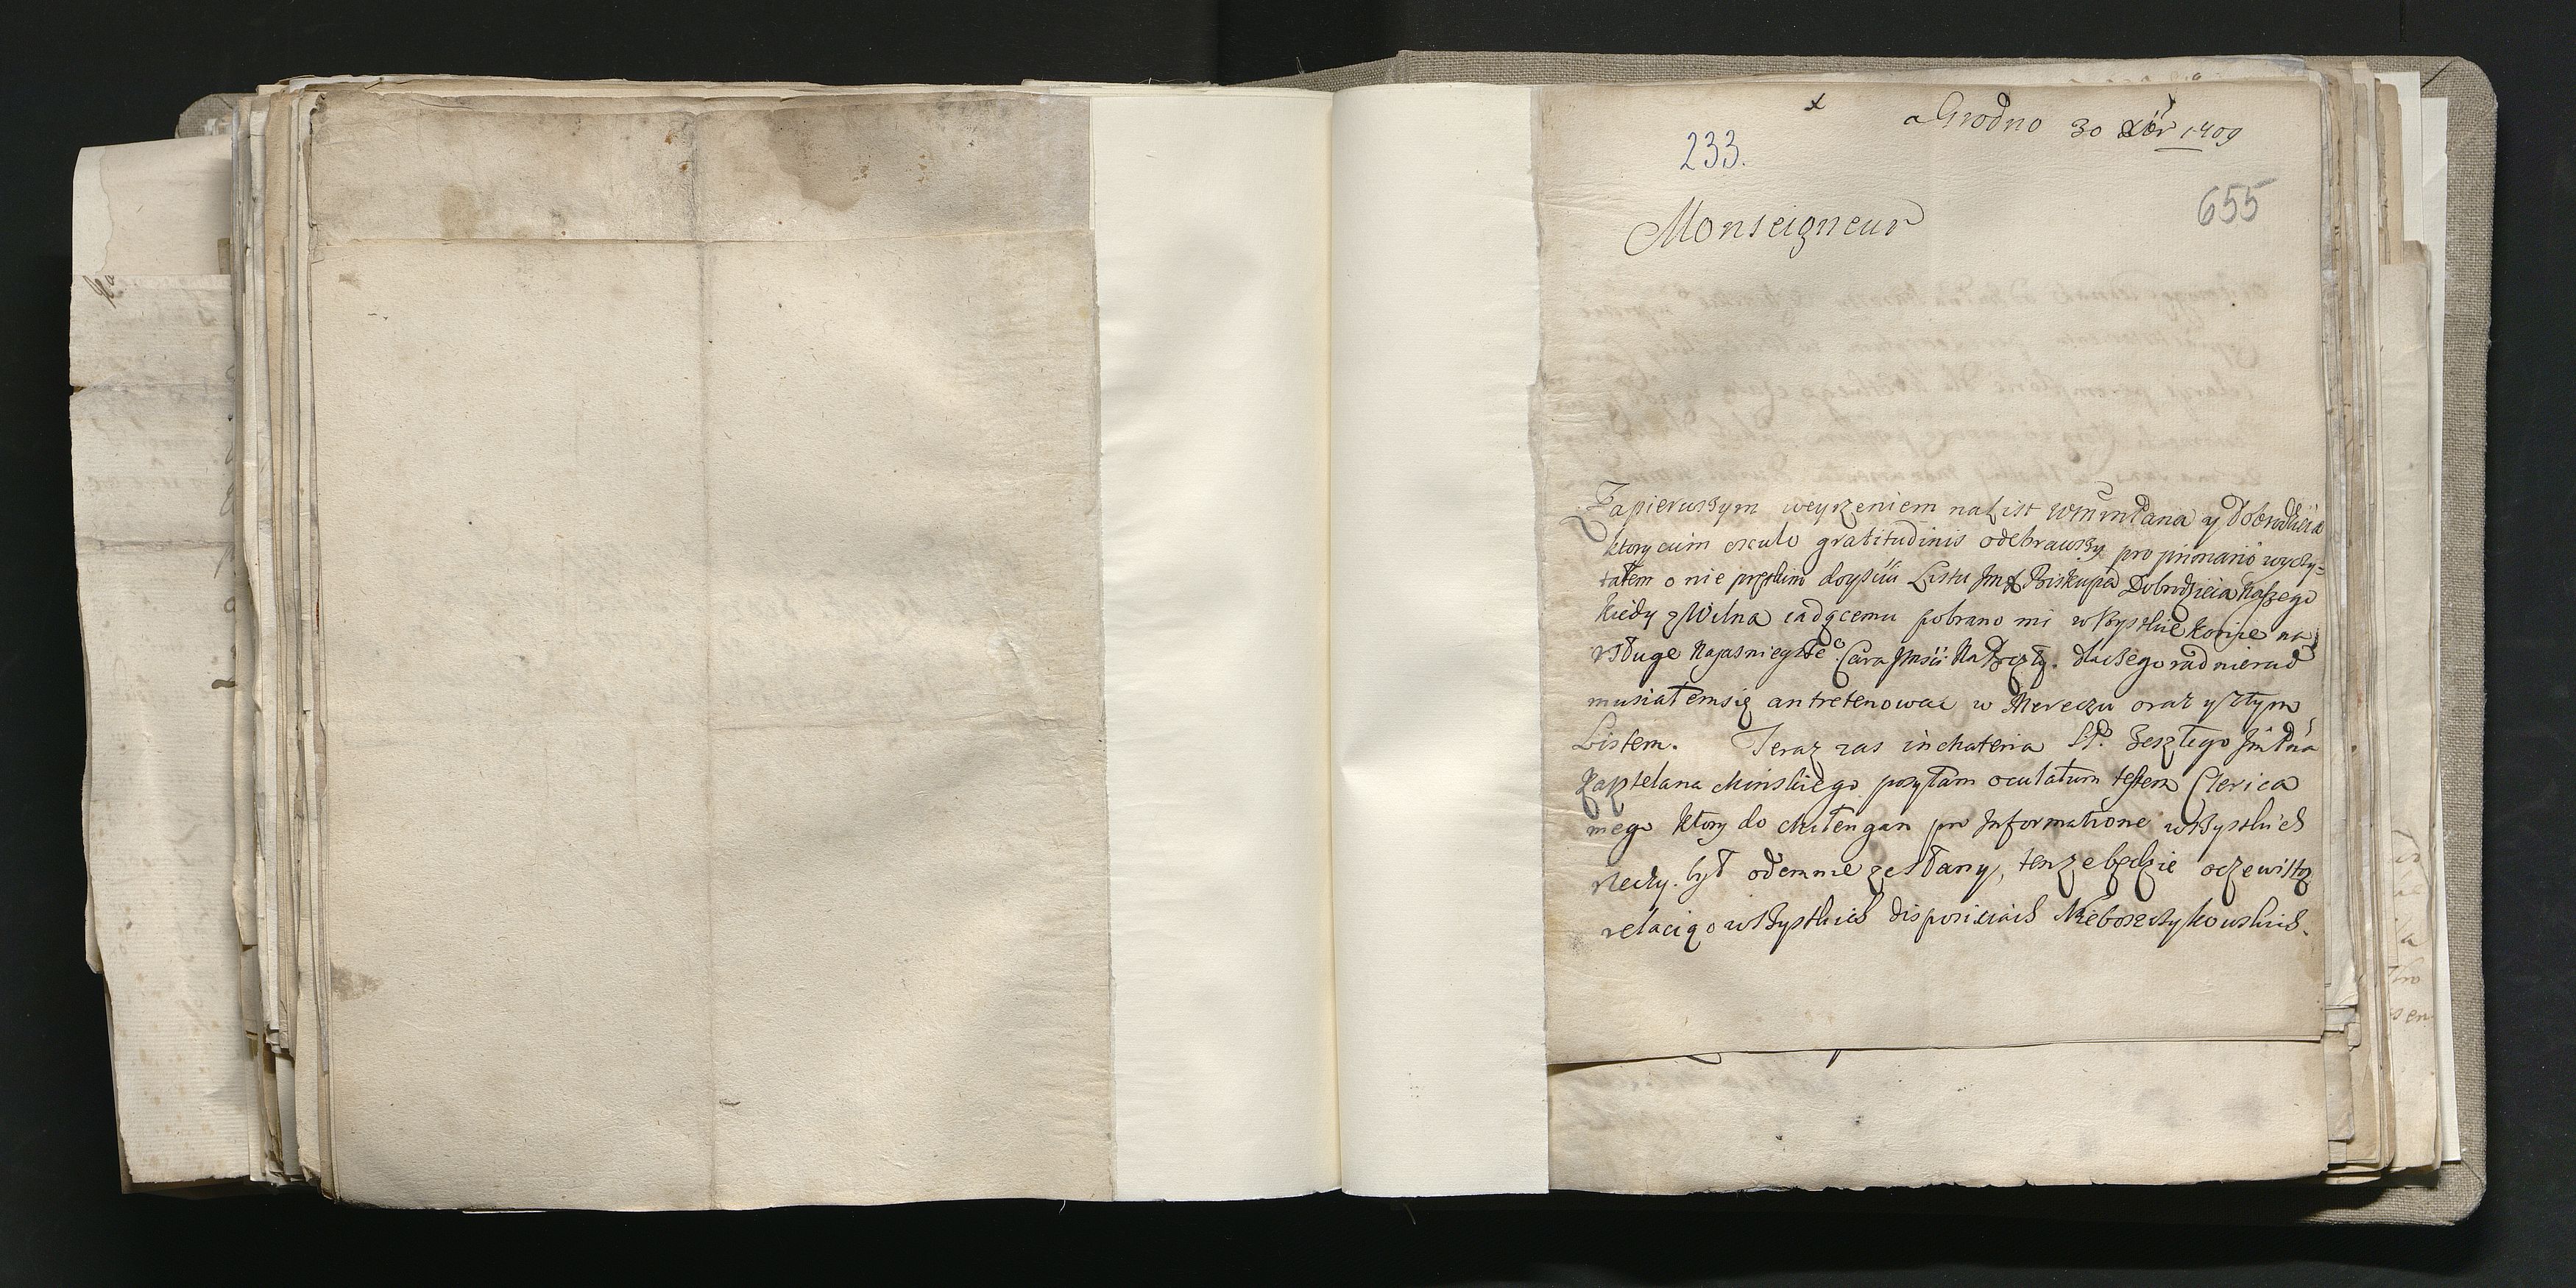 a Grodno 30 Xbr 1709
233.
655
Monseigneur
Zapierwszym weyrzeniem na List WmmPana y Dobrodzieia
ktory cum osculo gratitudinis odebrawszy pro primario wyczy-
tałem o nie prętkim doysciu Listu Jmx Biskupa Dobrodzieia Naszego
kiedy z Wilna iadącemu pobrano mi wszystkie konie na
usługe Najasnieysze° Cara Jmsci dlaczego rad nierad
musiałem się antretenowac w Mereczu oraz y ztym
Listem. Teraz zas in Materia SP. Zeszłego Jm Pna
Kasztelana Minskiego posyłam oculatum testem Clerica
mego ktory do pro Informatione wszystkich
rzeczy. był odemnie zesłany, tenze będzie oczewistą
relacią o wszystkich disposiciach Nieboszczykowskich.